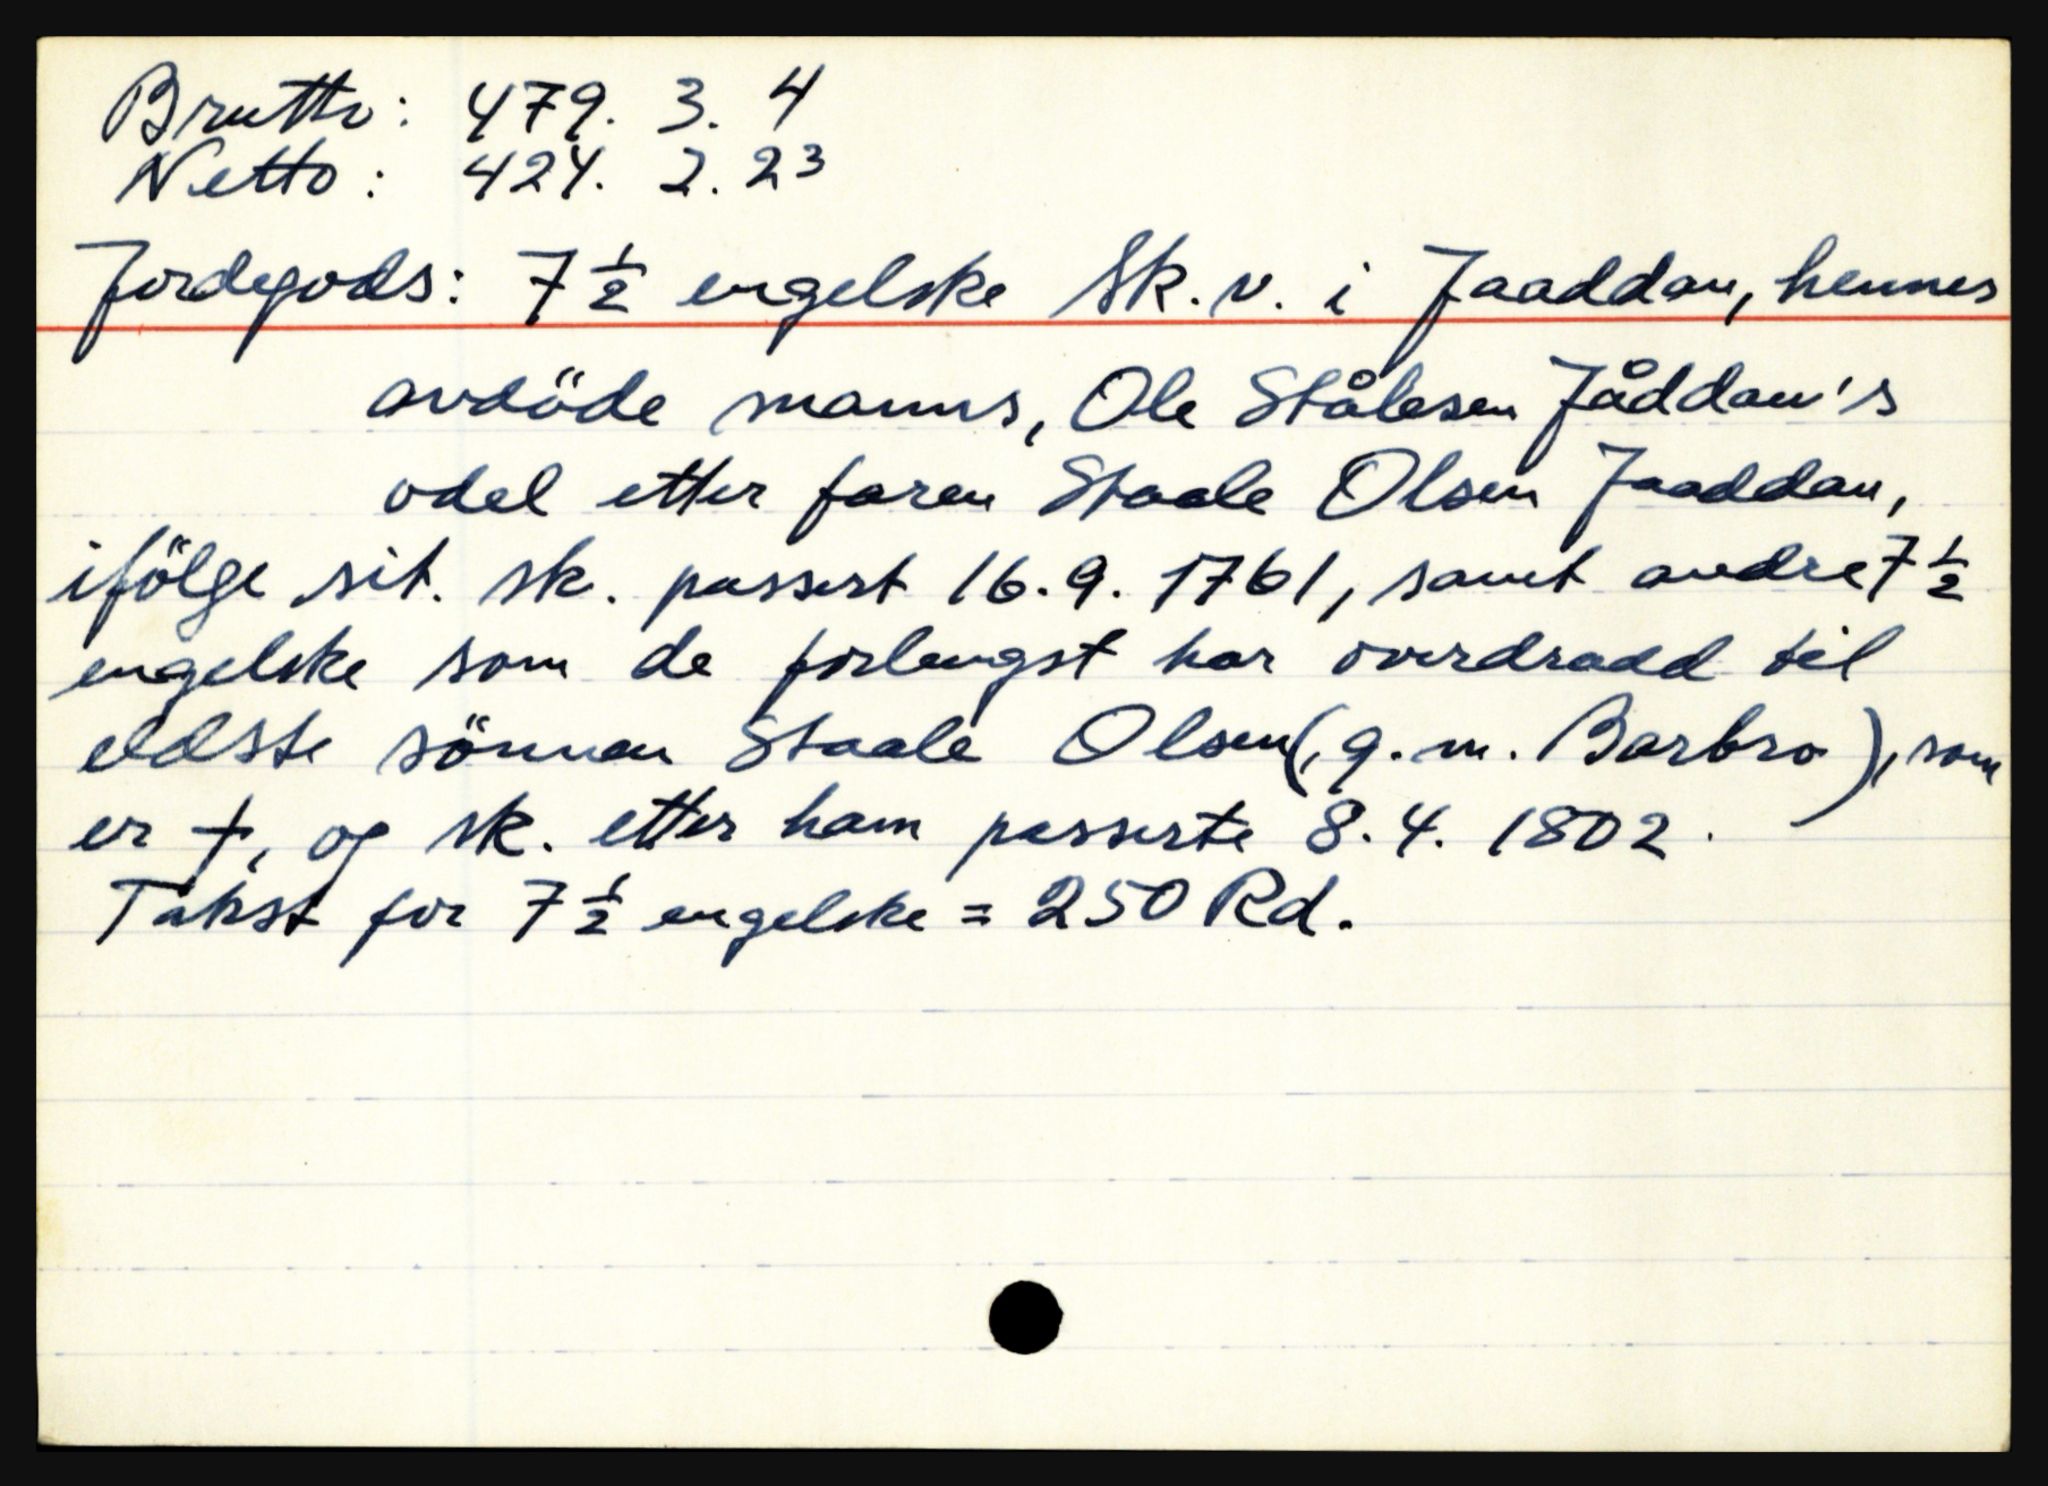 Brutto: 479. 3. 4
Netto: 424. 2. 23
Jordegods: 7 ½ engelske Sk. v. i Jaaddan, hennes
avdöde manns, Ole Stålesen Jåddan's
odel etter faren Staale Olsen Jaaddan,
ifölge sit. sk. passert 16. 9. 1761, samt andre 7 ½
engelske som de forlengst har overdradd til
eldste sönnen Staale Olsen (, g. m. Barbro), som
er †, og sk. etter ham passerte 8. 4. 1802.
Takst for 7 ½ engelske = 250 Rd.